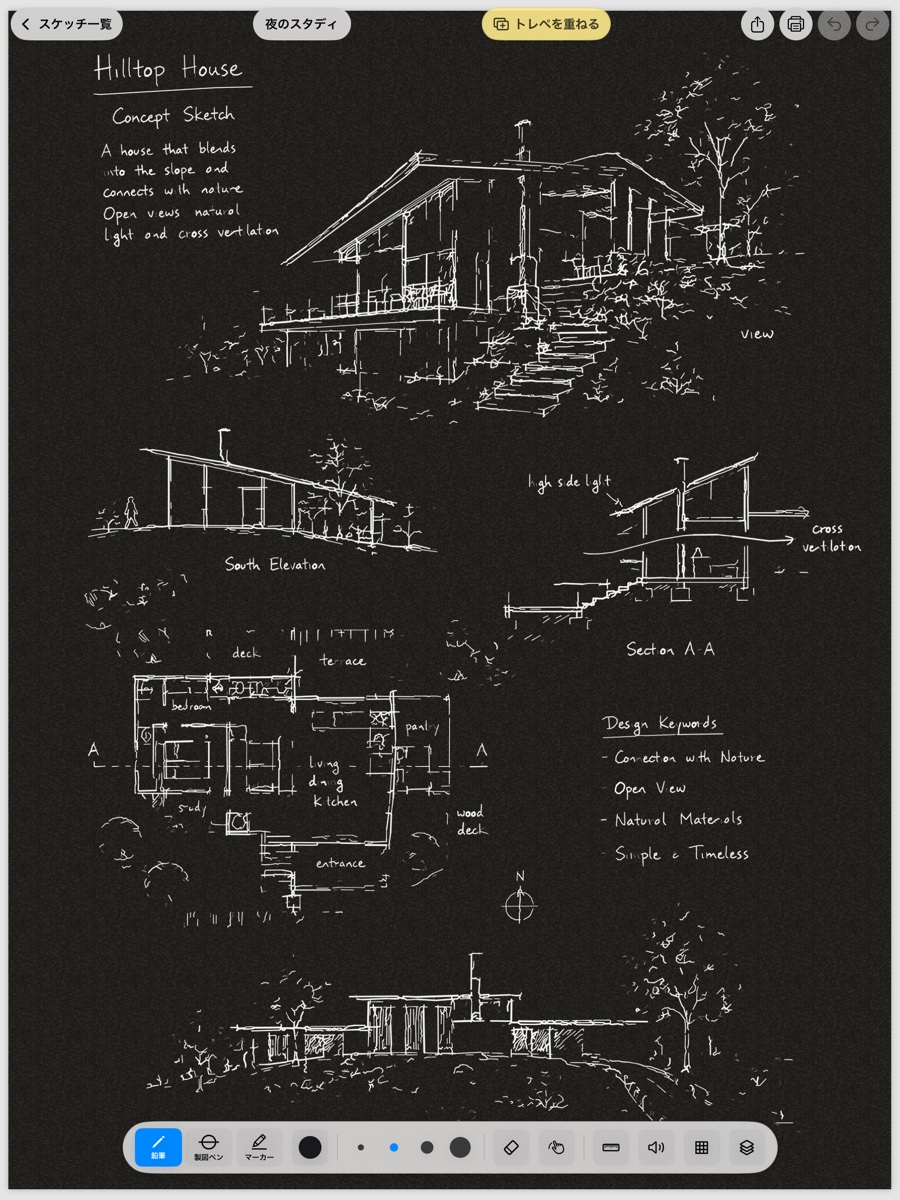 スケッチ一覧
夜のスタディ
トレペを重ねる
Hilltop House
Concept Sketch
A house that blends
into the slope and
connects with nature
Open views natural
light and cross ventilation
view
high side light
cross
ventilation
South Elevation
Section A-A
deck
terrace
bedroom
pantry
A
A
living
dining
kitchen
study
wood
deck
entrance
N
Design Keywords
- Connection with Nature
Open View
- Natural Materials
- Simple & Timeless
鉛筆
製図ペン
マーカー